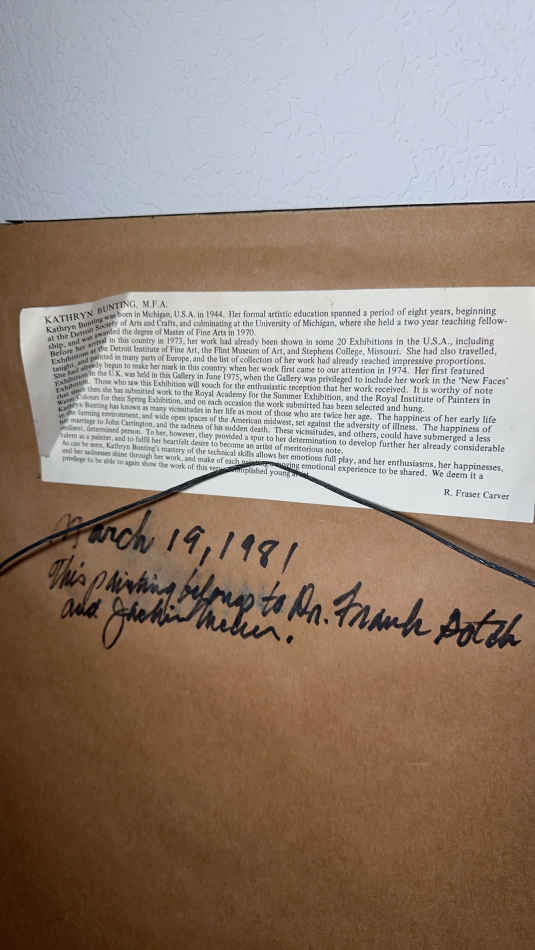 KATHRYN BUNTING, M.F.A.
Kathryn Bunting was born in Michigan, U.S.A. in 1944. Her formal artistic education spanned a period of eight years, beginning
at the Detroit Society of Arts and Crafts, and culminating at the University of Michigan, where she held a two year teaching fellow-
ship, and was awarded the degree of Master of Fine Arts in 1970.
Before her arrival in this country in 1973, her work had already been shown in some 20 Exhibitions in the U.S.A., including
Exhibitions at the Detroit Institute of Fine Art, the Flint Museum of Art, and Stephens College, Missouri. She had also travelled,
taught, and painted in many parts of Europe, and the list of collectors of her work had already reached impressive proportions.
She had already begun to make her mark in this country when her work first came to our attention in 1974. Her first featured
Exhibition in the U.K. was held in this Gallery in June 1975, when the Gallery was privileged to include her work in the 'New Faces'
Exhibition. Those who saw this Exhibition will vouch for the enthusiastic reception that her work received. It is worthy of note
that since then she has submitted work to the Royal Academy for the Summer Exhibition, and the Royal Institute of Painters in
Water Colours for their Spring Exhibition, and on each occasion the work submitted has been selected and hung.
Kathryn Bunting has known as many vicissitudes in her life as most of those who are twice her age. The happiness of her early life
in the farming environment, and wide open spaces of the American midwest, set against the adversity of illness. The happiness of
her marriage to John Carrington, and the sadness of his sudden death. These vicissitudes, and others, could have submerged a less
resilient, determined person. To her, however, they provided a spur to her determination to develop further her already considerable
talent as a painter, and to fulfil her heartfelt desire to become an artist of meritorious note.
As can be seen, Kathryn Bunting's mastery of the technical skills allows her emotions full play, and her enthusiasms, her happinesses,
and her sadnesses shine through her work, and make of each painting a moving emotional experience to be shared. We deem it a
privilege to be able to again show the work of this very accomplished young artist.
R. Fraser Carver
March 19, 1981
This painting belongs to Dr. Frank
and